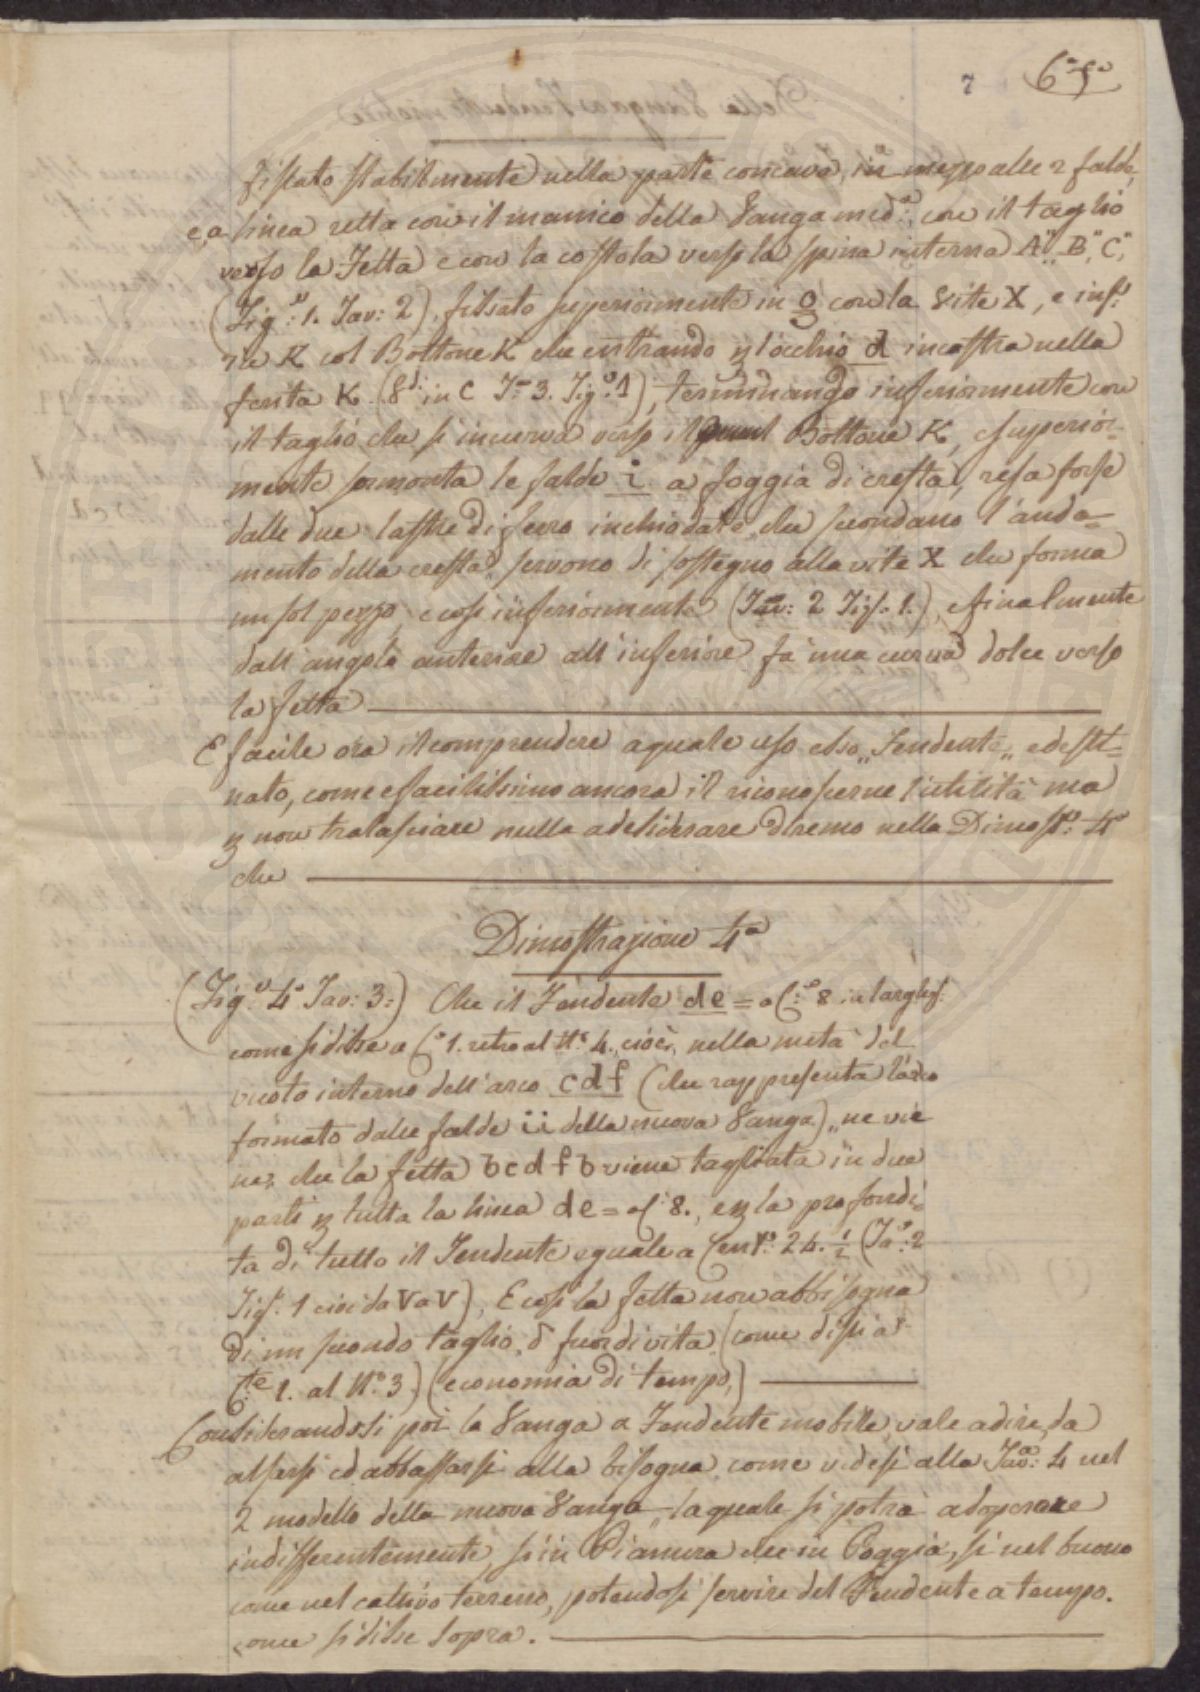 7 6ª fª
fissato stabilmente nella parte concava, in mezzo alle 2 falde,
e a linea retta con il manico della Vanga medª: con il taglio
verso la Fetta e con la costola verso la spina interna A", B", C",
(Figª: 1. Tav: 2). fissato superiormente in g con la Vite X, e inf:
re K col Bottone K che entrando p l'occhio d incastra nella
ferita K. (8di in C Tª 3. Figª: 1), terminando inferiormente con
il taglio che si incurva verso il Bottone K, e superior=
mente sormonta le falde i a foggia di cresta, resa forte
dalle due lastre di ferro inchiodate, che secondano l'anda=
mento della cresta, servono di sostegno alla vite X che forma
un sol pezzo, e così inferiormente (Tav: 2 Figª. 1.), e finalmente
dall'angolo anteriore all'inferiore fà una curva dolce verso
la fetta
E facile ora il comprendere a quale uso esso „Fendente„ e desti=
nato, come e facilissimo ancora il riconoscerne l'utilità ma
p non tralasciare nulla a desiderare diremo nella Dimostº: 4ª
che
Dimostrazione 4ª
(Figª 4ª Tav: 3:) Che il Fendente de = a C: 8 in larghezª:
come si disse a Cª 1. retro al Nº 4., cioè, nella metà del
vuoto interno dell'arco cdf (che rappresenta l'arco
formato dalle falde ii della nuova Vanga), ne vie
ne, che la fetta bcdfb viene tagliata in due
parti p tutta la linea de = a C: 8., e p la profondi=
tà di tutto il Fendente eguale a Centº: 24. ½ (Taª: 2
Figª. 1 cioè da V a V), E così la fetta non abbisogna
di un secondo taglio, o fuor di vita, (come dissi a
Cte 1. al Nº. 3) (economia di tempo)
Considerandosi poi la Vanga a Fendente mobile, vale a dire, da
alzarsi ed abbassarsi alla bisogna, come vedesi alla Tavª: 4 nel
2 modello della nuova Vanga, la quale si potrà adoperare
indifferentemente, sì in Pianura che in Poggio, sì nel buono
come nel cattivo terreno, potendosi servire del Fendente a tempo.
come si disse sopra.